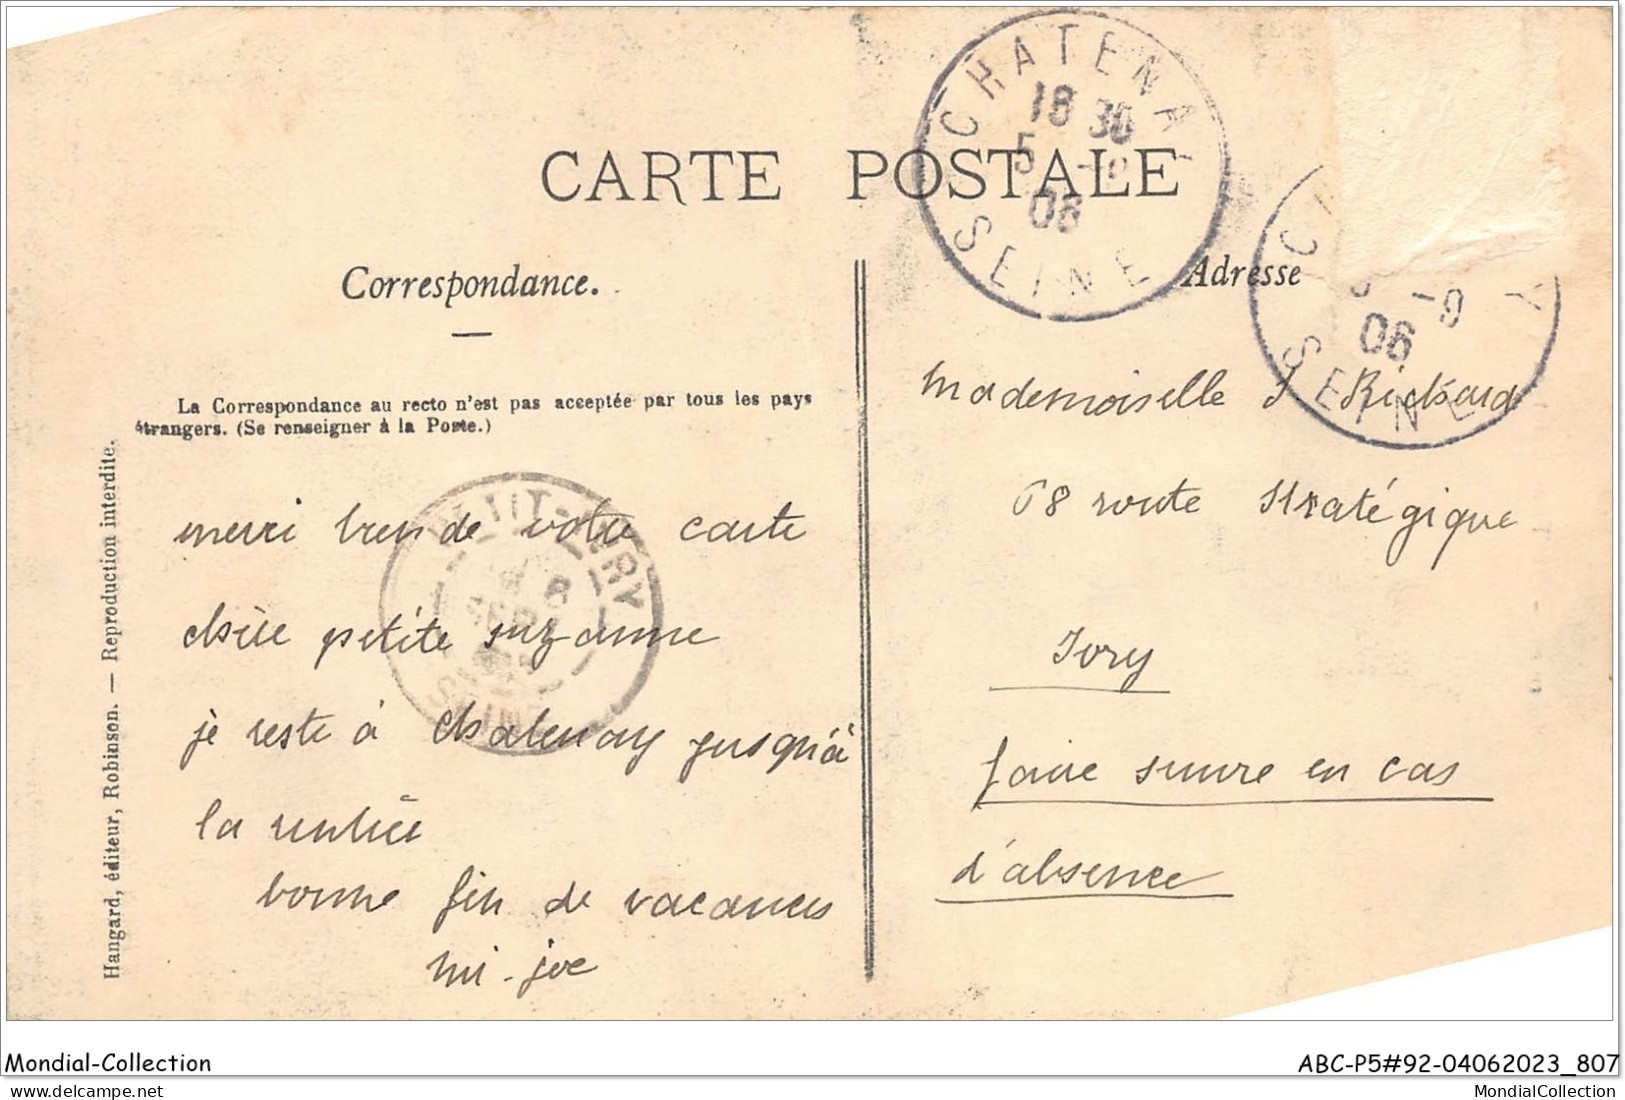 CARTE POSTALE
CHATENAY
18 30
5 -9
06
SEINE
-9
06
SEINE
Correspondance.
Adresse
La Correspondance au recto n'est pas acceptée par tous les pays
étrangers. (Se renseigner à la Poste.)
Hangard, éditeur, Robinson. — Reproduction interdite.
PETIT-IVRY
8
SEPT
SEINE
merci bien de votre carte
chère petite suzanne
je reste à chatenay jusqu'à
la rentrée
bonne fin de vacances
mi-joe
Mademoiselle S Richard
68 route stratégique
Ivry
faire suivre en cas
d'absence
Mondial-Collection
ABC-P5#92-04062023_807
www.delcampe.net
MondialCollection